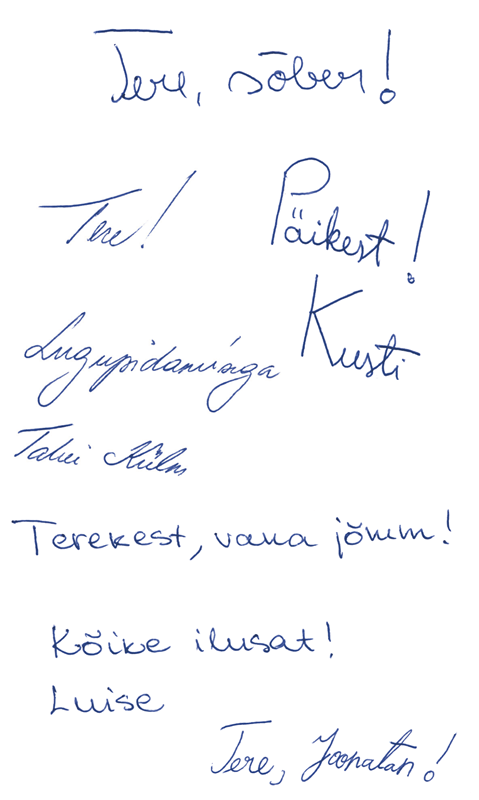 Tere, sõber!
Tere!
Päikest!
Kusti
Lugupidamisega
Talvi Külm
Terekest, vana jõmm!
Kõike ilusat!
Luise
Tere, Joonatan!